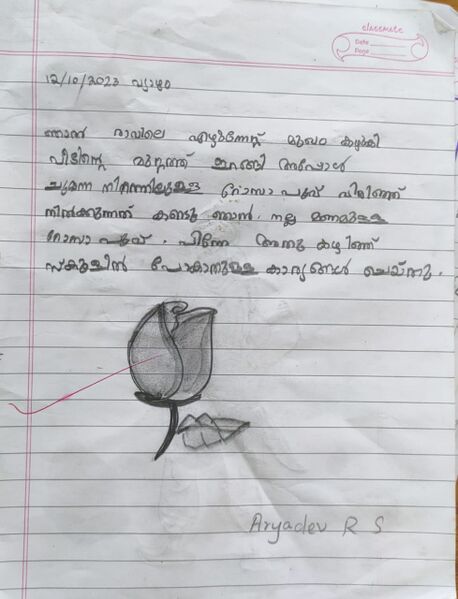 classmate
Date
Page
12/10/2023 വ്യാഴം
ഞാൻ രാവിലെ എഴുന്നേറ്റ് മുഖം കഴുകി
വീടിന്റെ മുറ്റത്ത് ഇറങ്ങി അപ്പോൾ
ചുമന്ന നിറത്തിലുള്ള റോസാ പൂവ് വിരിഞ്ഞ്
നിൽക്കുന്നത് കണ്ടു ഞാൻ. നല്ല മണമുള്ള
റോസാ പൂവ്. പിന്നേ അതു കഴിഞ്ഞ്
സ്കൂളിൽ പോകാനുള്ള കാര്യങ്ങൾ ചെയ്തു.
Aryadev R S